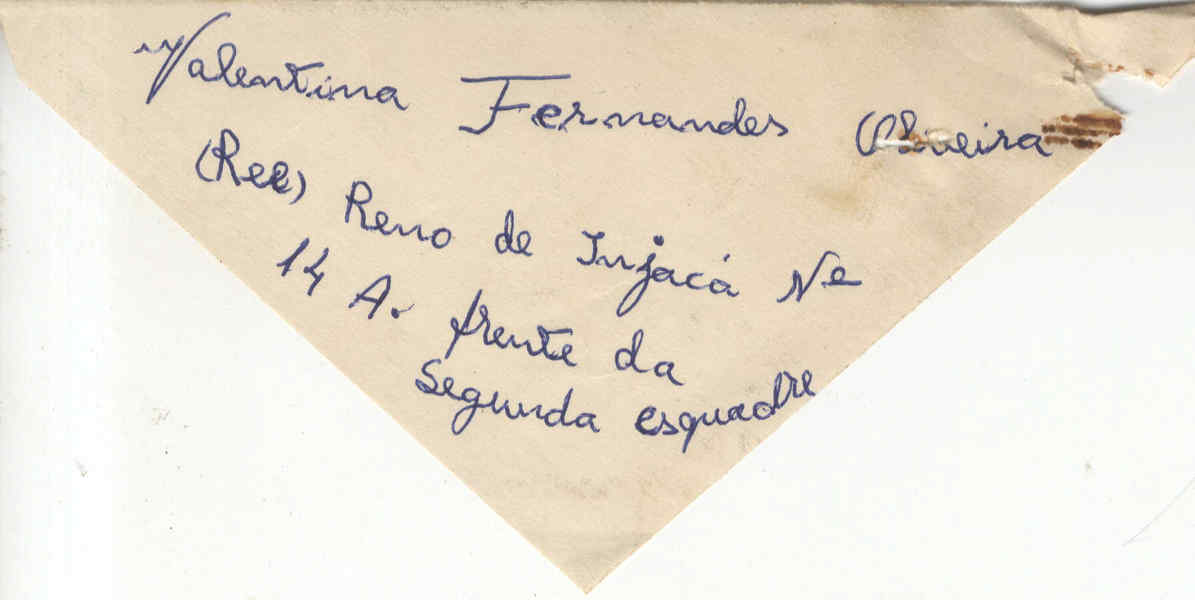 Valentina Fernandes Oliveira
(Rec) Reno de Injacá Ne
14 A. frente da
segunda esquadre